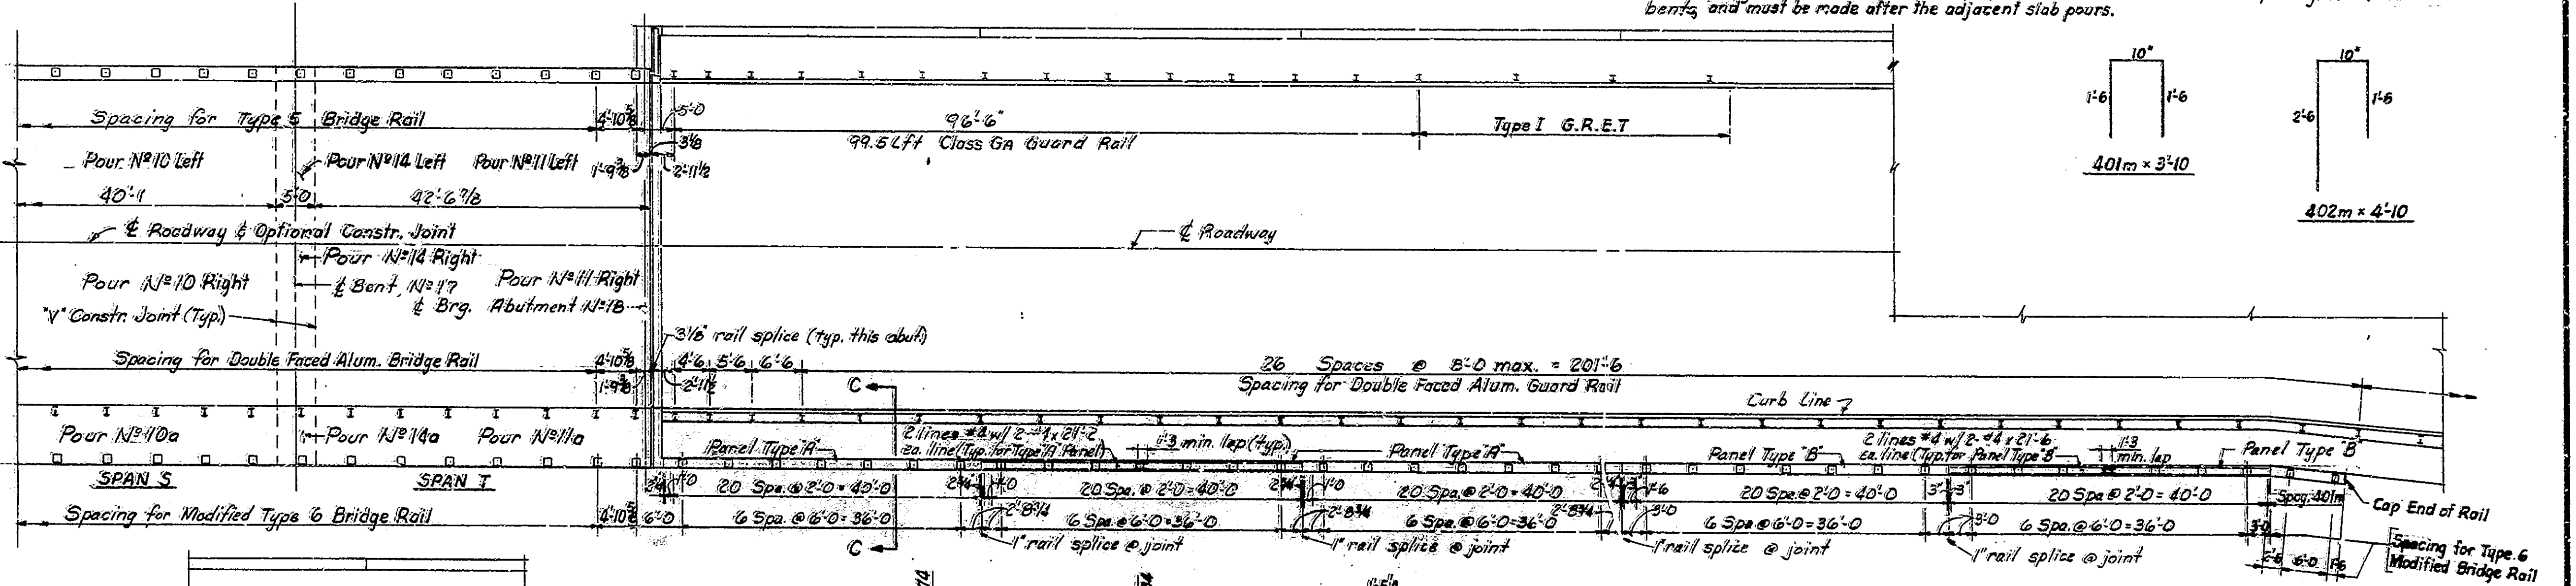 bents, and must be made after the adjacent slab pours.
10"
1'-6
1'-6
401m × 3'-10
10"
2'-6
1'-6
402m × 4'-10
Spacing for Type 5 Bridge Rail
4'-10⅝
5'-0
96'-6"
99.5 Lft Class GA Guard Rail
Type I G.R.E.T
3⅛
1'-9⅜
2'-11½
Pour Nº 10 Left
Pour Nº 14 Left
Pour Nº 11 Left
40'-11
5'-0
42'-6⅞
℄ Roadway & Optional Constr. Joint
℄ Roadway
Pour Nº 14 Right
Pour Nº 10 Right
℄ Bent, Nº 17
Pour Nº 11 Right
℄ Brg. Abutment Nº 18
"V" Constr. Joint (Typ.)
3⅛" rail splice (typ. this abut.)
Spacing for Double Faced Alum. Bridge Rail
4'-10⅝
4'-6
5'-6
6'-6
26 Spaces @ 8'-0 max. = 201'-6
1'-9⅜
2'-11½
C
Spacing for Double Faced Alum. Guard Rail
Curb Line
Pour Nº 10a
Pour Nº 14a
Pour Nº 11a
Panel Type "A"
2 lines #4 w/ 2-#4 x 21'-2
ea. line (Typ. for Type "A" Panel)
1'-3 min. lap (typ.)
Panel Type "A"
Panel Type "B"
2 lines #4 w/ 2-#4 x 21'-6
ea. line (Typ. for Panel Type "B"
1'-3
min. lap
Panel Type "B"
SPAN S
SPAN T
1'-0
20 Spa. @ 2'-0 = 40'-0
1'-0
20 Spa. @ 2'-0 = 40'-0
1'-0
20 Spa. @ 2'-0 = 40'-0
1'-6
20 Spa @ 2'-0 = 40'-0
3"
3"
20 Spa @ 2'-0 = 40'-0
Spcg. 401m
Cap End of Rail
Spacing for Modified Type 6 Bridge Rail
4'-10⅝
6'-0
6 Spa. @ 6'-0 = 36'-0
2'-8¾
6 Spa @ 6'-0 = 36'-0
2'-8¾
6 Spa @ 6'-0 = 36'-0
2'-8¾
3'-0
6 Spa @ 6'-0 = 36'-0
3'-0
6 Spa. @ 6'-0 = 36'-0
3'-0
C
1" rail splice @ joint
1" rail splice @ joint
1" rail splice @ joint
1" rail splice @ joint
6'-0
1'-6
Spacing for Type 6
Modified Bridge Rail